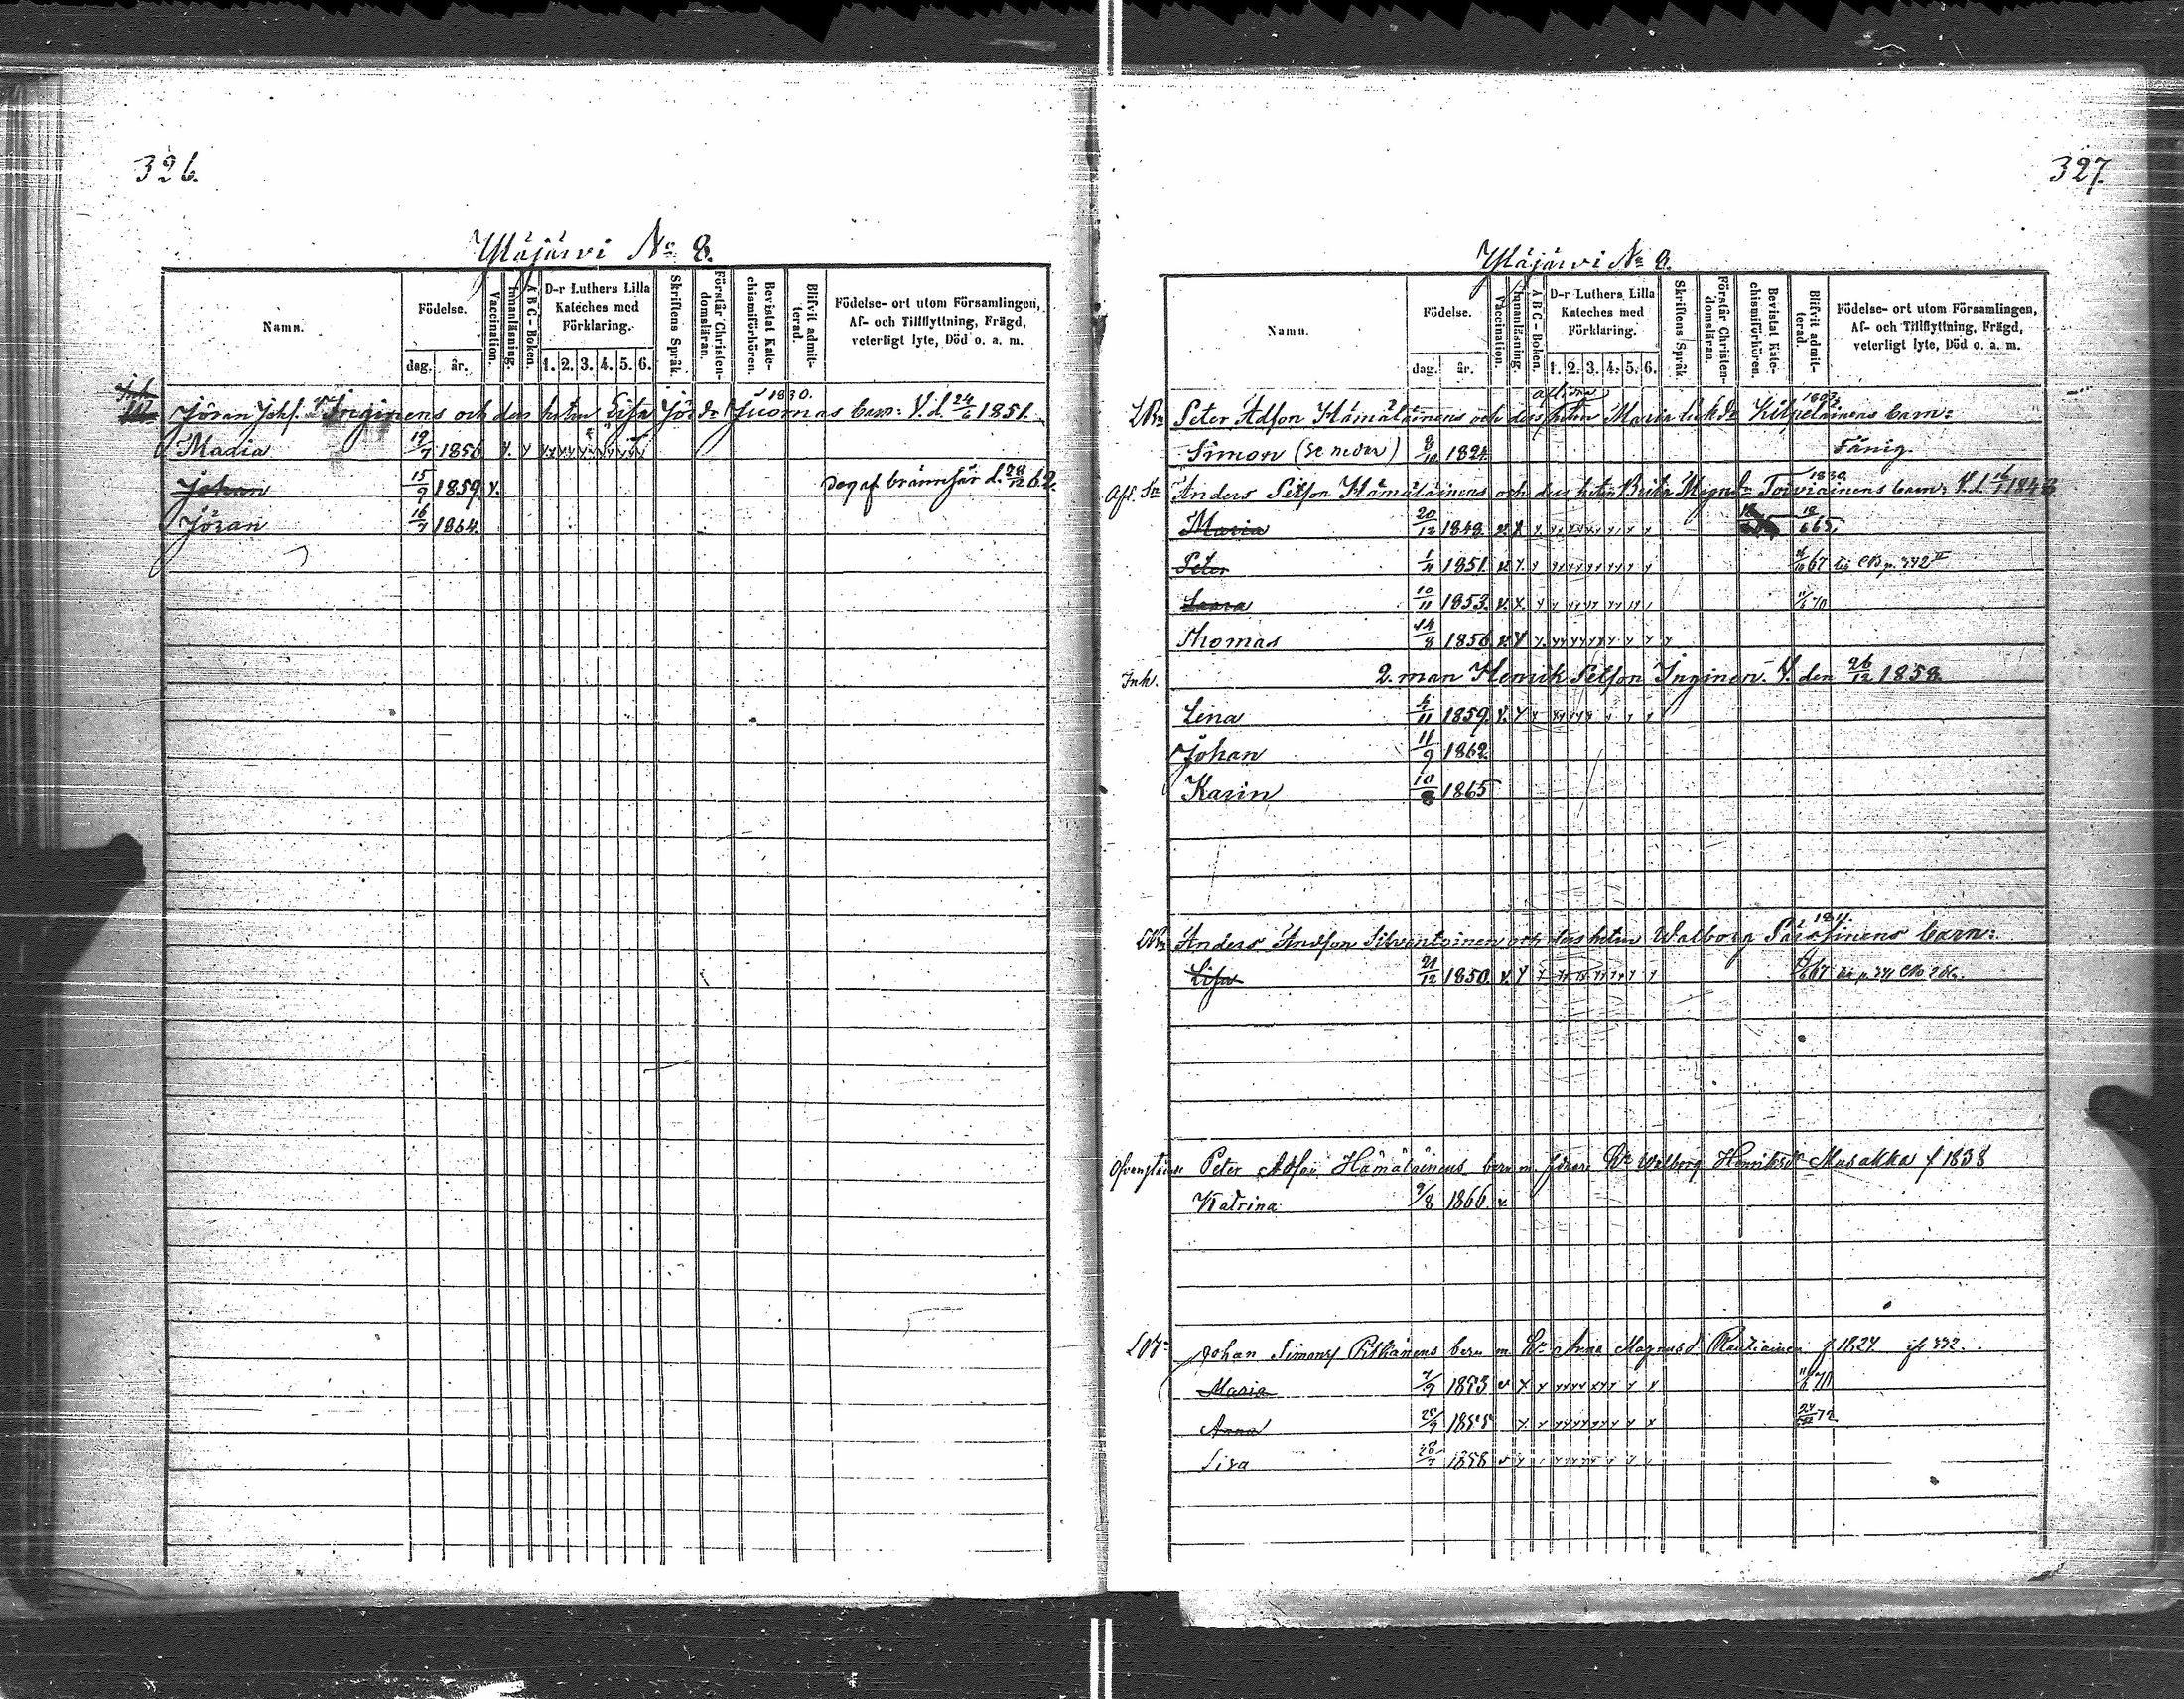 326.
Yläjärvi No 8.
Namn.
Födelse.
dag.
år.
Vaccination.
Innanläsning.
A B C - Boken.
D-r Luthers Lilla
Kateches med
Förklaring.
1. 2. 3. 4. 5. 6.
Skriftens Språk.
Förstår Christen-
domsläran.
Bevistat Kate-
chismiförhören.
Blifvit admit-
terad.
Födelse- ort utom Församlingen,
Af- och Tillflyttning, Frägd,
veterligt lyte, Död o. a. m.
Inh.
1830.
Jöran Johs. Inginens och dess hustru Lisa Jör dr Juomas barn: V. d. 24/6 1851.
Madia 19/7 1856
Johan 15/9 1859 Dog af brännsår d. 28/12 62.
Jöran 16/7 1864.
327.
Yläjärvi No 8.
Namn.
Födelse.
dag.
år.
Vaccination.
Innanläsning.
A B C - Boken.
D-r Luthers Lilla
Kateches med
Förklaring.
1. 2. 3. 4. 5. 6.
Skriftens Språk.
Förstår Christen-
domsläran.
Bevistat Kate-
chismiförhören.
Blifvit admit-
terad.
Födelse- ort utom Församlingen,
Af- och Tillflyttning, Frägd,
veterligt lyte, Död o. a. m.
aflidna
Peter Adfson Hämäläinens och dess hustru Maria barn:
Simon (se nedan) 8/10 1824. Fånig.
1830.
Anders Petson Hämäläinens och dess hustru Brita Magnd. Toiviainens barn: V. d.
Maria 20/12 1848. 18/6 65.
Peter 1/11 1851. 67
Laura 10/11 1853. 70
Thomas 14/8 1856
Inh. 2. man Henrik Petson Inginen. V. den 26/12 1858.
Lena 4/11 1859.
Johan 11/9 1862.
Karin 10/8 1865
1811.
Anders Andson Silvantoinen och dess hustru Walborg Pärssinens barn:
Lisa 21/12 1850. 67
Peter Adfson Hämäläinens barn m. Walborg Henriksdr Musakka f 1838
Katrina 9/8 1866.
Johan Simons Pitkänens barn m. Anna Magnusd. Rautiainen f 1824
Maria 7/9 1853 70
Anna 25/9 1855 72
Lisa 28/7 1858